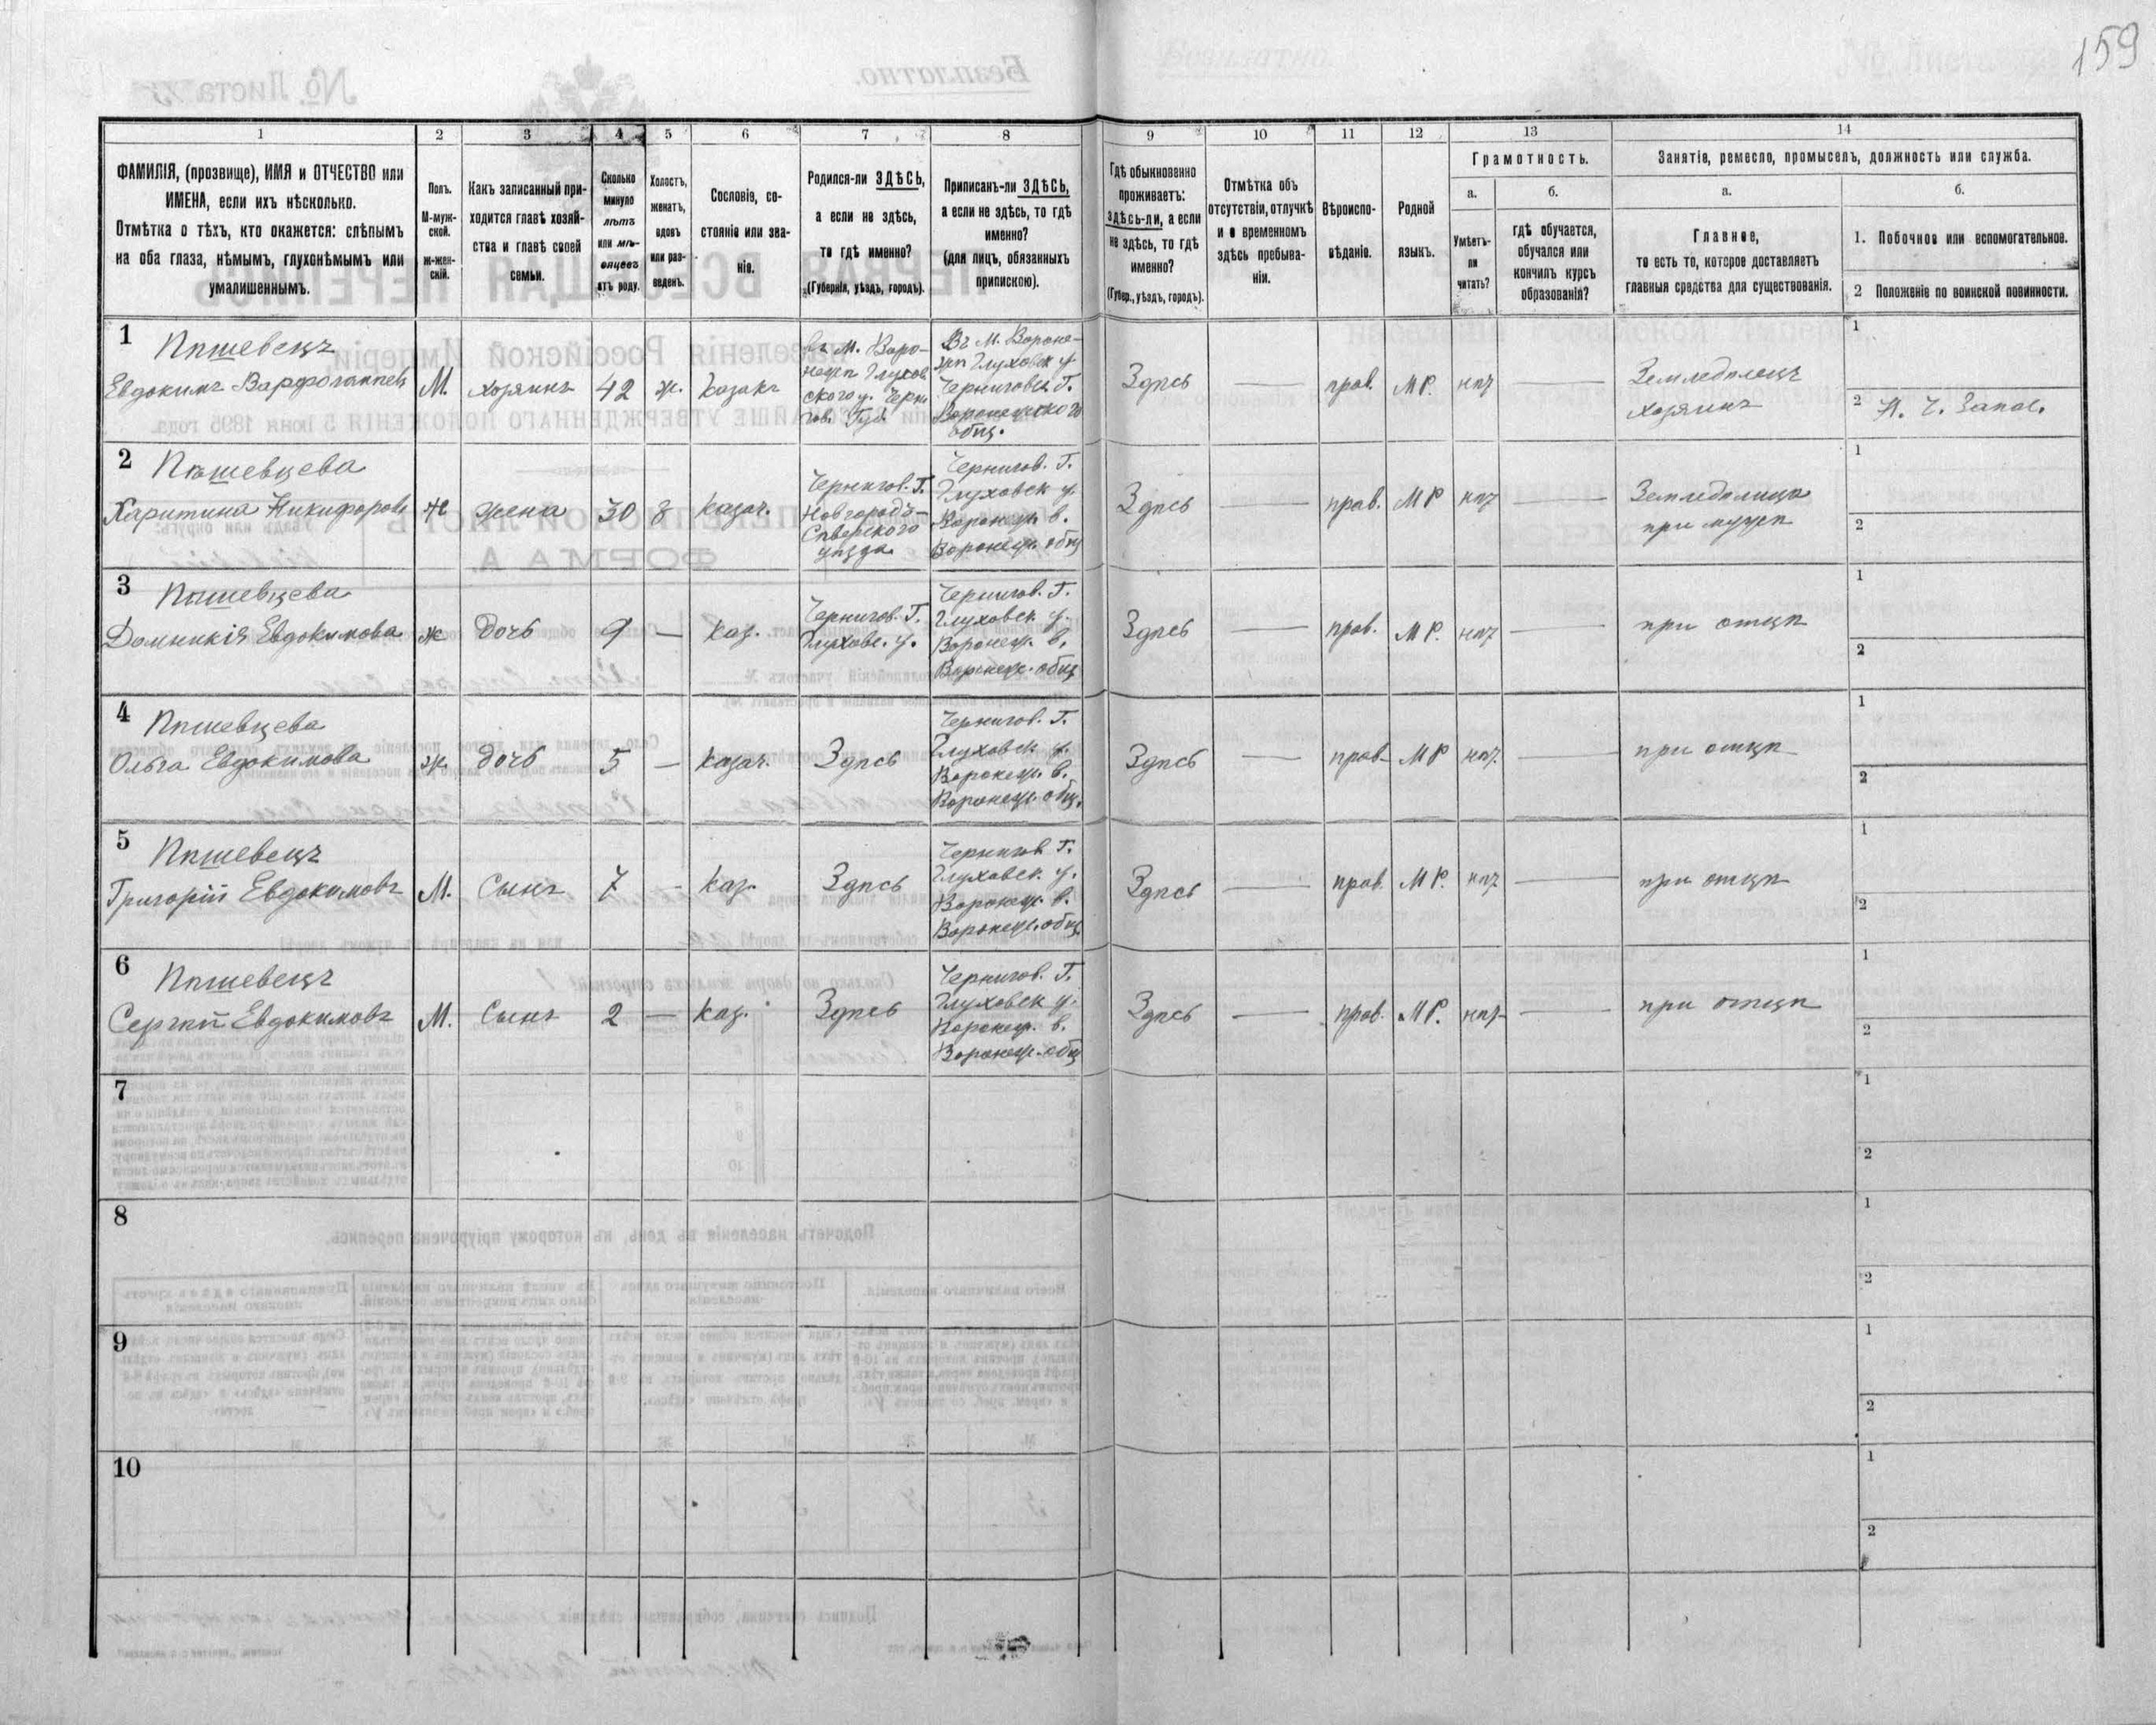 159
1 2 3 4 5 6 7 8 9 10 11 12 13 14
ФАМИЛІЯ, (прозвище), ИМЯ и ОТЧЕСТВО или
ИМЕНА, если ихъ нѣсколько.
Отмѣтка о тѣхъ, кто окажется: слѣпымъ
на оба глаза, нѣмымъ, глухонѣмымъ или
умалишеннымъ.
Полъ.
М-муж-
ской.
ж-жен-
скій.
Какъ записанный при-
ходится главѣ хозяй-
ства и главѣ своей
семьи.
Сколько
минуло
лѣтъ
или мѣ-
сяцевъ
отъ роду.
Холостъ,
женатъ,
вдовъ
или раз-
веденъ.
Сословіе, со-
стояніе или зва-
ніе.
Родился-ли ЗДѢСЬ,
а если не здѣсь,
то гдѣ именно?
(Губернія, уѣздъ, городъ).
Приписанъ-ли ЗДѢСЬ,
а если не здѣсь, то гдѣ
именно?
(для лицъ, обязанныхъ
припискою).
Гдѣ обыкновенно
проживаетъ:
здѣсь-ли, а если
не здѣсь, то гдѣ
именно?
(Губер., уѣздъ, городъ).
Отмѣтка объ
отсутствіи, отлучкѣ
и о временномъ
здѣсь пребыва-
ніи.
Вѣроиспо-
вѣданіе.
Родной
языкъ.
Грамотность.
а.
Умѣетъ-
ли
читать?
б.
гдѣ обучается,
обучался или
кончилъ курсъ
образованія?
Занятіе, ремесло, промыселъ, должность или служба.
а.
Главное,
то есть то, которое доставляетъ
главныя средства для существованія.
б.
1. Побочное или вспомогательное.
2 Положеніе по воинской повинности.
1 Пѣшевецъ
Евдокимъ
М. хозяинъ 42 ж. казакъ
въ М. Воро-
нежѣ Глухов
ского у. Черни
гов. Губ.
Въ М. Вороне-
жѣ Глуховск у.
Черниговск Г.
Воронежскаго
общ.
Здѣсь — прав. М Р. нѣт —
Земледѣлецъ
хозяинъ
1
2 Н. Ч. Запас.
2 Пѣшевцева
Харитина Никифорова
ж жена 30 з казач.
Чернигов. Г.
Новгородъ-
Сѣверского
уѣзда
Чернигов. Г.
Глуховск у.
Воронеж. в.
Воронеж. общ
Здѣсь — прав. М Р нѣт —
Земледѣлица
при мужѣ
1
2
3 Пѣшевцева
Домникія Евдокимова
ж дочь 9 — каз.
Чернигов. Г.
Глуховс. у.
Чернигов. Г.
Глуховск. у.
Воронеж. в.
Воронеж. общ
Здѣсь — прав. М Р. нѣт — при отцѣ
1
2
4 Пѣшевцева
Ольга Евдокимова
ж. дочь 5 — казач. Здѣсь
Чернигов. Г.
Глуховск у.
Воронеж. в.
Воронеж. общ.
Здѣсь — прав- М Р нѣт. — при отцѣ
1
2
5 Пѣшевецъ
Григорій Евдокимовъ
М. Сынъ 7 - каз. Здѣсь
Чернигов Г.
Глуховск. у.
Воронеж. в.
Воронеж. общ.
Здѣсь — прав. М Р. нѣт — при отцѣ
1
2
6 Пѣшевецъ
Сергѣй Евдокимовъ
М. Сынъ 2 — каз. Здѣсь
Чернигов. Г.
Глуховск у.
Воронеж. в.
Воронеж. общ
Здѣсь — прав. М Р. нѣт — при отцѣ
1
2
7
1
2
8
1
2
9
1
2
10
1
2